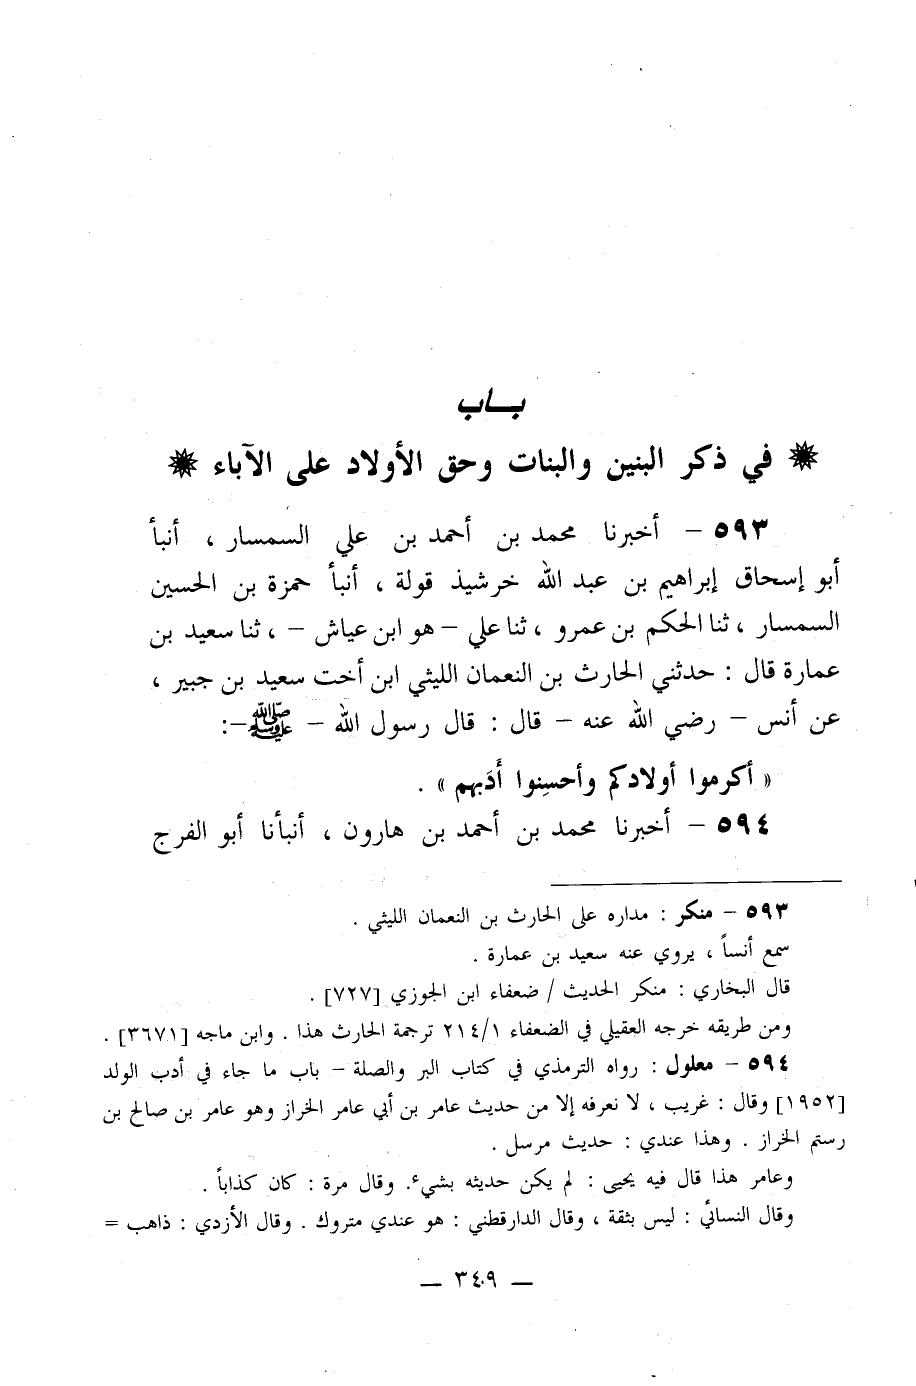 بـاب
في ذكر البنين والبنات وحق الأولاد على الآباء
٥٩٣ – أخبرنا محمد بن أحمد بن علي السمسار ، أنبأ
أبو إسحاق إبراهيم بن عبد الله خرشيذ قولة ، أنبأ حمزة بن الحسين
السمسار ، ثنا الحكم بن عمرو ، ثنا علي – هو ابن عياش – ، ثنا سعيد بن
عمارة قال : حدثني الحارث بن النعمان الليثي ابن أخت سعيد بن جبير ،
عن أنس – رضي الله عنه – قال : قال رسول الله – ﷺ –:
« أكرموا أولادكم وأحسِنوا أَدَبهم » .
٥٩٤ – أخبرنا محمد بن أحمد بن هارون ، أنبأنا أبو الفرج
٥٩٣ – منكر : مداره على الحارث بن النعمان الليثي .
سمع أنساً ، يروي عنه سعيد بن عمارة .
قال البخاري : منكر الحديث / ضعفاء ابن الجوزي [٧٢٧] .
ومن طريقه خرجه العقيلي في الضعفاء ٢١٤/١ ترجمة الحارث هذا . وابن ماجه [٣٦٧١] .
٥٩٤ – معلول : رواه الترمذي في كتاب البر والصلة – باب ما جاء في أدب الولد
[١٩٥٢] وقال : غريب ، لا نعرفه إلا من حديث عامر بن أبي عامر الخراز وهو عامر بن صالح بن
رستم الخراز . وهذا عندي : حديث مرسل .
وعامر هذا قال فيه يحيى : لم يكن حديثه بشيء. وقال مرة : كان كذاباً .
وقال النسائي : ليس بثقة ، وقال الدارقطني : هو عندي متروك . وقال الأزدي : ذاهب =
— ٣٤٠٩ —